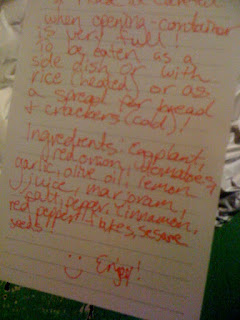 when opening - container
is very full!
To be eaten as a
side dish or with
rice (heated) or as
a spread for bread
+ crackers (cold)!
Ingredients: Eggplant,
red onion, tomatoes,
garlic, olive oil, lemon
juice, marjoram,
salt, pepper, cinnamon,
red pepper flakes, sesame
seeds!!
Enjoy!